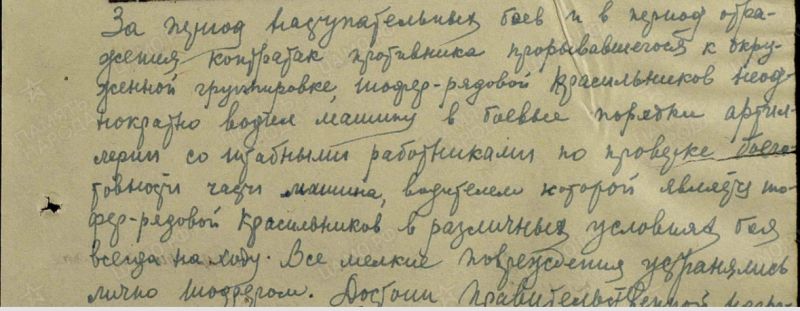 За период наступательных боев и в период отра-
жения контратак противника прорывавшегося к окру-
женной группировке, шофер-рядовой Красильников неод-
нократно водил машину в боевые порядки артил-
лерии со штабными работниками по проверке боего-
товности части машина, водителем которой является шо-
фер-рядовой Красильников в различных условиях боя
всегда на ходу. Все мелкие повреждения устранялись
лично шофером. Достоин Правительственной